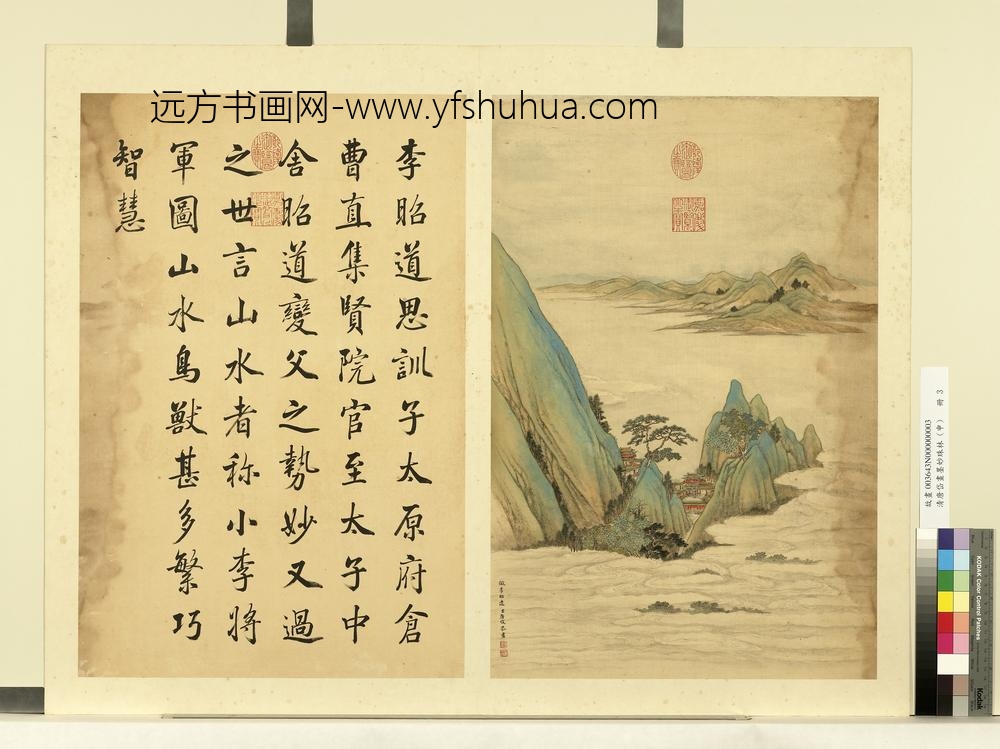 远方书画网-www.yfshuhua.com
李昭道思訓子太原府倉
曹直集賢院官至太子中
舍昭道變父之勢妙又過
之世言山水者称小李將
軍圖山水鳥獸甚多繁巧
智慧
倣李昭道
故畫003643N000000003
清唐岱畫墨妙珠林(申) 冊 3
KODAK Color Control Patches
Kodak